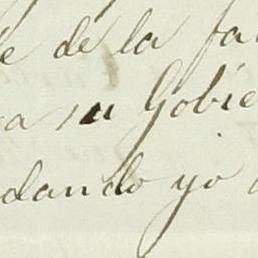 de la fa
a su Gobie
dando yo